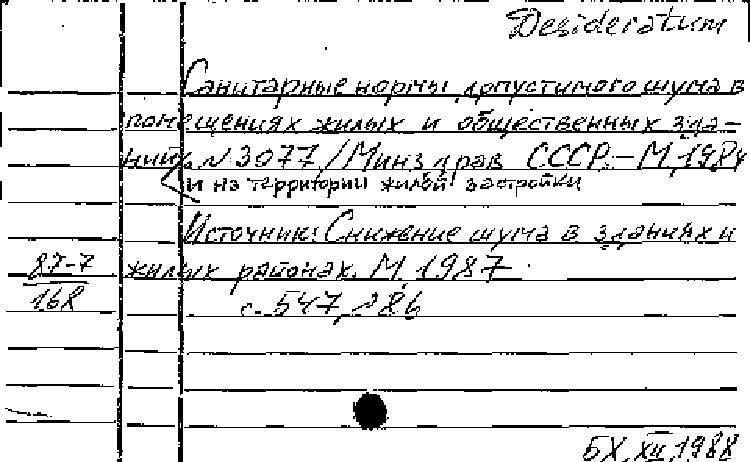 Desideratum
Санитарные нормы допустимого шума в
помещениях жилых и общественных зда-
ний, N 3077/Минздрав СССР.-М, 1984
и на территории жилой застройки
Источник: Снижение шума в зданиях и
87-7 жилых районах. М, 1987
168 с. 547, 286
БХ, XII, 1988